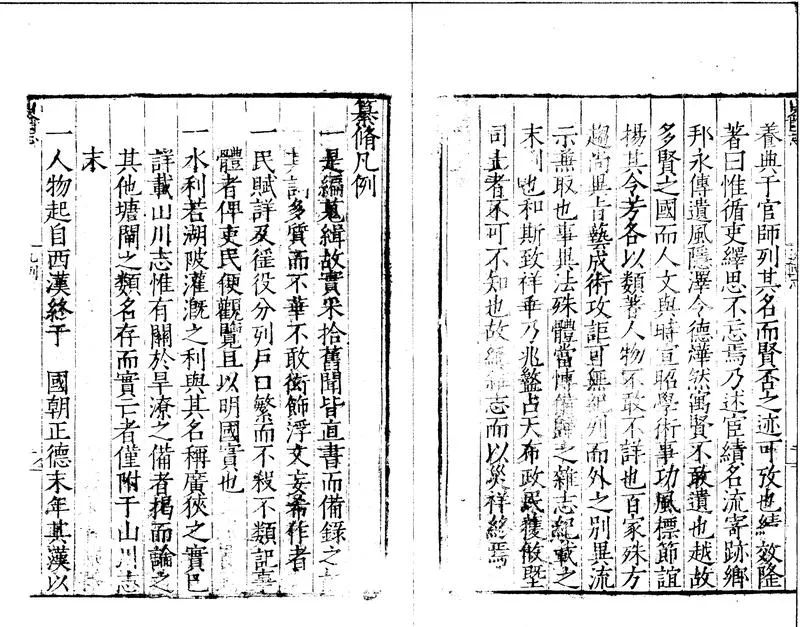 養典于官師列其名而賢否之迹可攷也績效隆
著曰惟循吏繹思不忘焉乃述宦績名流寄跡鄉
邦永傳遺風隱澤今德燁然寓賢不敢遺也越故
多賢之國而人文與時宣昭學術事功風標節誼
揚其令芳各以類著人物不敢不詳也百家殊方
趨尚異旨藝成術攻詎可無紀列而外之別異流
示無取也事與法殊體當愽備歸之雜志紀載之
末也和斯致祥乖乃兆盭占天布政民獲攸墍
司者不可不知也故雜志而以災祥終焉
纂脩凡例
一是編蒐緝故實采拾舊聞皆直書而備錄之
其詞多質而不華不敢衒飾浮文妄希作者
一民賦詳及徭役分列戶口繁而不殺不類記事
體者俾吏民便觀覽且以明國實也
一水利若湖陂灌溉之利與其名稱廣狹之實已
詳載山川志惟有關於旱潦之備者揭而論之
其他塘閘之類名存而實亡者僅附于山川志
末
一人物起自西漢終于 國朝正德末年其漢以